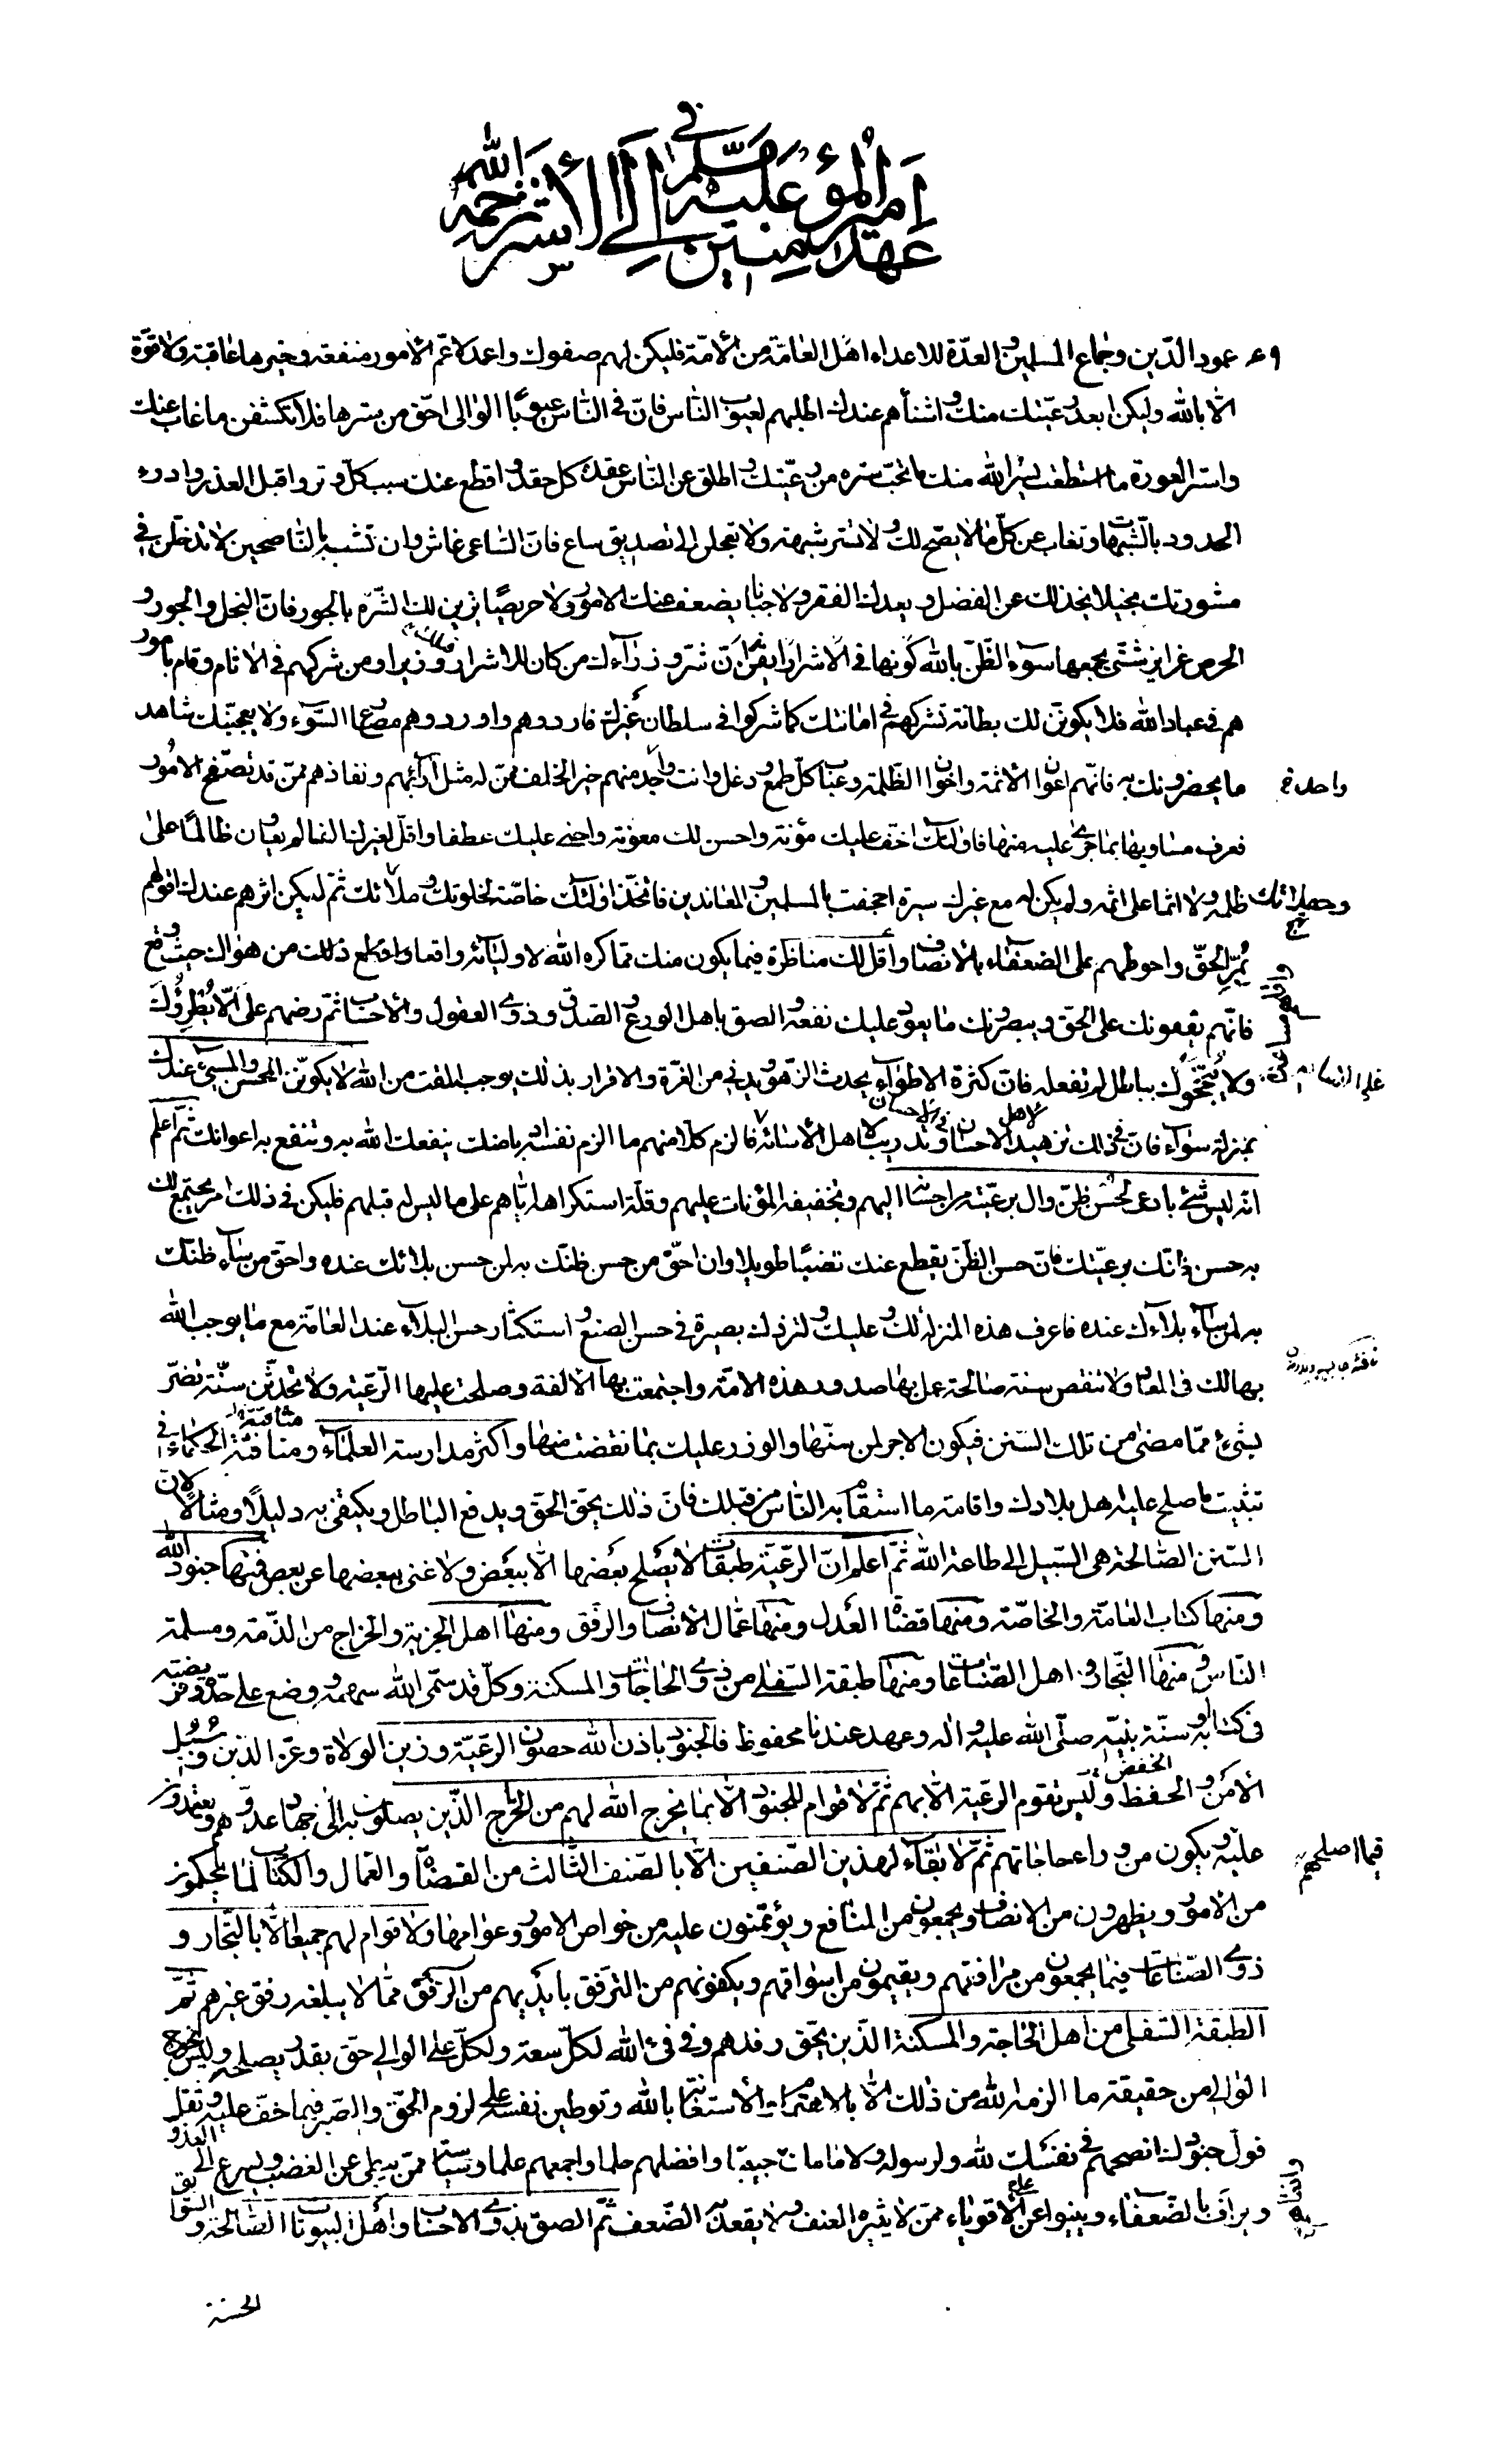 في
عهد أمير المؤمنين عليه السلم إلى الأشتر رحمه الله
وعـ عمود الدّين وجماع المسلمين والعدّة للاعداء اهل العامّة من الأمّة فليكن لهم صغوك واعمد لاعمّ الأمور منفعة وخيرها عاقبة ولا قوّة
الّا بالله وليكن ابعد رعيّتك منك واشنأهم عندك اطلبهم لعيوب النّاس فانّ في النّاس عيوبًا الوالى احقّ من سترها فلا تكشفن ما غاب عنك
واستر العورة ما استطعت يستر الله منك ما تحبّ ستره من رعيّتك واطلق عن النّاس عقد كل حقد واقطع عنك سبب كلّ وتر واقبل العذر وادرء
الحدود بالشّبهات وتغاب عن كلّ ما لا يضح لك ولا تستر شبهة ولا تعجلن الى تصديق ساع فانّ السّاعى غاش وان تشبه بالنّاصحين لا تدخلن في
مشورتك بخيلا يخذلك عن الفضل ويعدك الفقر ولا جبانا يضعف عنك الامور ولا حريصًا يزين لك الشّره بالجور فانّ البخل والجور و
الحرص غرايز شتّى يجمعها سوء الظّن بالله كونها في الاشرار ايقن انّ شرّ وزرآءك من كان للاشرار قبلك وزيرا ومن شركهم في الاثام وقام بأمور
هم في عباد الله فلا يكوننّ لك بطانة تشركهم في امانتك كما شركوا في سلطان غيرك فاردوهم واوردوهم مصارع السّوء ولا يعجبنّك شاهد
ما يحضرونك به فانّهم اعوان الأثمة واخوان الظّلمة وعباب كلّ طمع ودغل وانت واجد منهم خير الخلف ممّن له مثل آرآئهم ونفاذهم ممّن قد تصفّح الأمور
واحد خ
فعرف مساويها بما جرى عليه منها فاولئك اخفّ عليك مؤنة واحسن لك معونة واحنى عليك عطفا واقلّ لغيرك الفا لم يعاون ظالمًا على
ظلمه ولا اثما على اثمه ولم يكن له مع غيرك سيرة اجحفت بالمسلمين والمعاندين فاتّخذ اولئك خاصّة لخلوتك وملائك ثمّ ليكن اثرهم عندك اقولهم
بمرّ الحقّ واحوطهم على الضعفاء بالأنصاف وأقلّ لك مناظرة فيما يكون منك ممّا كره الله لاوليائه واقعا ذلك من هواك حيث وقع
فانّهم يقفونك على الحقّ ويبصرونك ما يعود عليك نفعه والصق باهل الورع والصّدق وذوى العقول والأحساب ثمّ رضهم على ألّا يُطروُك
ولا يُبجّحوك بباطل لم تفعله فانّ كثرة الاطرآء يحدث الزّهو ويدنى من الغرّة والاقرار بذلك يوجب المقت من الله لا يكوننّ المحسن والمسيء عندك
بمنزلة سوآء فانّ في ذلك تزهيد لاهل الاحسان في الاحسان وتدريب لاهل الأسائة فالزم كلّا منهم ما الزم نفسه ادبا منك ينفعك الله به وتنفع به اعوانك ثمّ اعلم
انّه ليس شئ بادعى لحسن ظنّ وال برعيّته من احسانه اليهم وتخفيفه المؤنات عليهم وقلّة استكراهه ايّاهم على ما ليس له قبلهم فليكن في ذلك امر يجتمع لك
به حسن ظنّك برعيّتك فانّ حسن الظنّ يقطع عنك نصبًا طويلا وان احقّ من حسن ظنّك به لمن حسن بلائك عنده واحق من سآء ظنّك
به لمن سآء بلاءك عنده فاعرف هذه المنزلة لك وعليك ولتزدك بصيرة في حسن الصنع واستكثار حسن البلآء عند العامّة مع ما يوجب الله
بها لك في المعاد ولا تنقص سنة صالحة عمل بها صدور هذه الامّة واجتمعت بها الألفة وصلحت عليها الرّعيّة ولا تحدثنّ سنّة تضرّ
بشيء ممّا مضى من تلك السّنن فيكون الاجر لمن سنّها والوزر عليك بما نقضت منها واكثر مدارسة العلمآء ومنافثة الحكماء في
مثافنة
تثبيت ما صلح عليه اهل بلادك واقامة ما استقام به النّاس من قبلك فانّ ذلك يحقّ الحقّ ويدفع الباطل ويكتفى به دليلًا ومثالًا لانّ
السّنن الصّالحة هي السّبيل الى طاعة الله ثمّ اعلم انّ الرعيّة طبقات لا يصلح بعضها الّا ببعض ولا غنى ببعضها عن بعض فمنها جنود الله
ومنها كتاب العامّة والخاصّة ومنها قضاة العدل ومنها عمّال الأنصاف والرّفق ومنها اهل الجزية والخراج من الذّمة ومسلمة
النّاس ومنها التّجار واهل الصّناعات ومنها طبقة السّفلى من ذوى الحاجات والمسكنة وكلّ قد سمّى الله سهمه ووضع على حدّه وفريضته
في كتابه او سنّة نبيّه صلّى الله عليه واله وعهد عندنا محفوظ فالجنود باذن الله حصون الرعيّة وزين الولاة وعزّ الدّين وسُبُل
الأمن والحفظ وليس تقوم الرعيّة الّا بهم ثمّ لا قوام للجنود الّا بما يخرج الله لهم من الخراج الّذين يصلون به إلى جهاد عدوّهم ويعتمدون
الخفض
عليه ويكون من وراء حاجاتهم ثمّ لا بقآء لهذين الصّنفين الّا بالصّنف الثّالث من القضاة والعمال والكتّاب لما يحكمون
فيما اصلحهم
من الأمور ويظهرون من الانصاف ويجمعون من المنافع ويؤتمنون عليه من خواص الامور وعوامها ولا قوام لهم جميعا الّا بالتّجار و
ذوى الصّناعات فيما يجمعون من مرافقهم ويقيمون من اسواقهم ويكفونهم من التّرفق بأيديهم من الرّفق ممّا لا يبلغه رفق غيرهم ثمّ
الطبقة السّفلى من اهل الحاجة والمسكنة الذّين يحقّ رفدهم وفي فيء الله لكلّ سعة ولكلّ على الوالي حقّ بقدر يصلحه وليس يخرج
الوالي من حقيقة ما الزمه الله من ذلك الّا بالاهتمام والأستعانة بالله وتوطين نفسه على لزوم الحقّ والصّبر فيما خفّ عليه وثقل
فولّ جنودك انصحهم في نفسك لله ولرسوله ولامامك جيبًا وافضلهم حلما واجمعهم علما وسياسة ممّن يبطى عن الغضب ويسرع الى العذر
ويرأف بالضّعفاء وينبوا عن على الأقوياء ممّن لا يثيره العنف ولا يقعد به الضّعف ثمّ الصق بذوى الاحساب واهل البيوتات الصّالحة والسّوابق
الحسنة